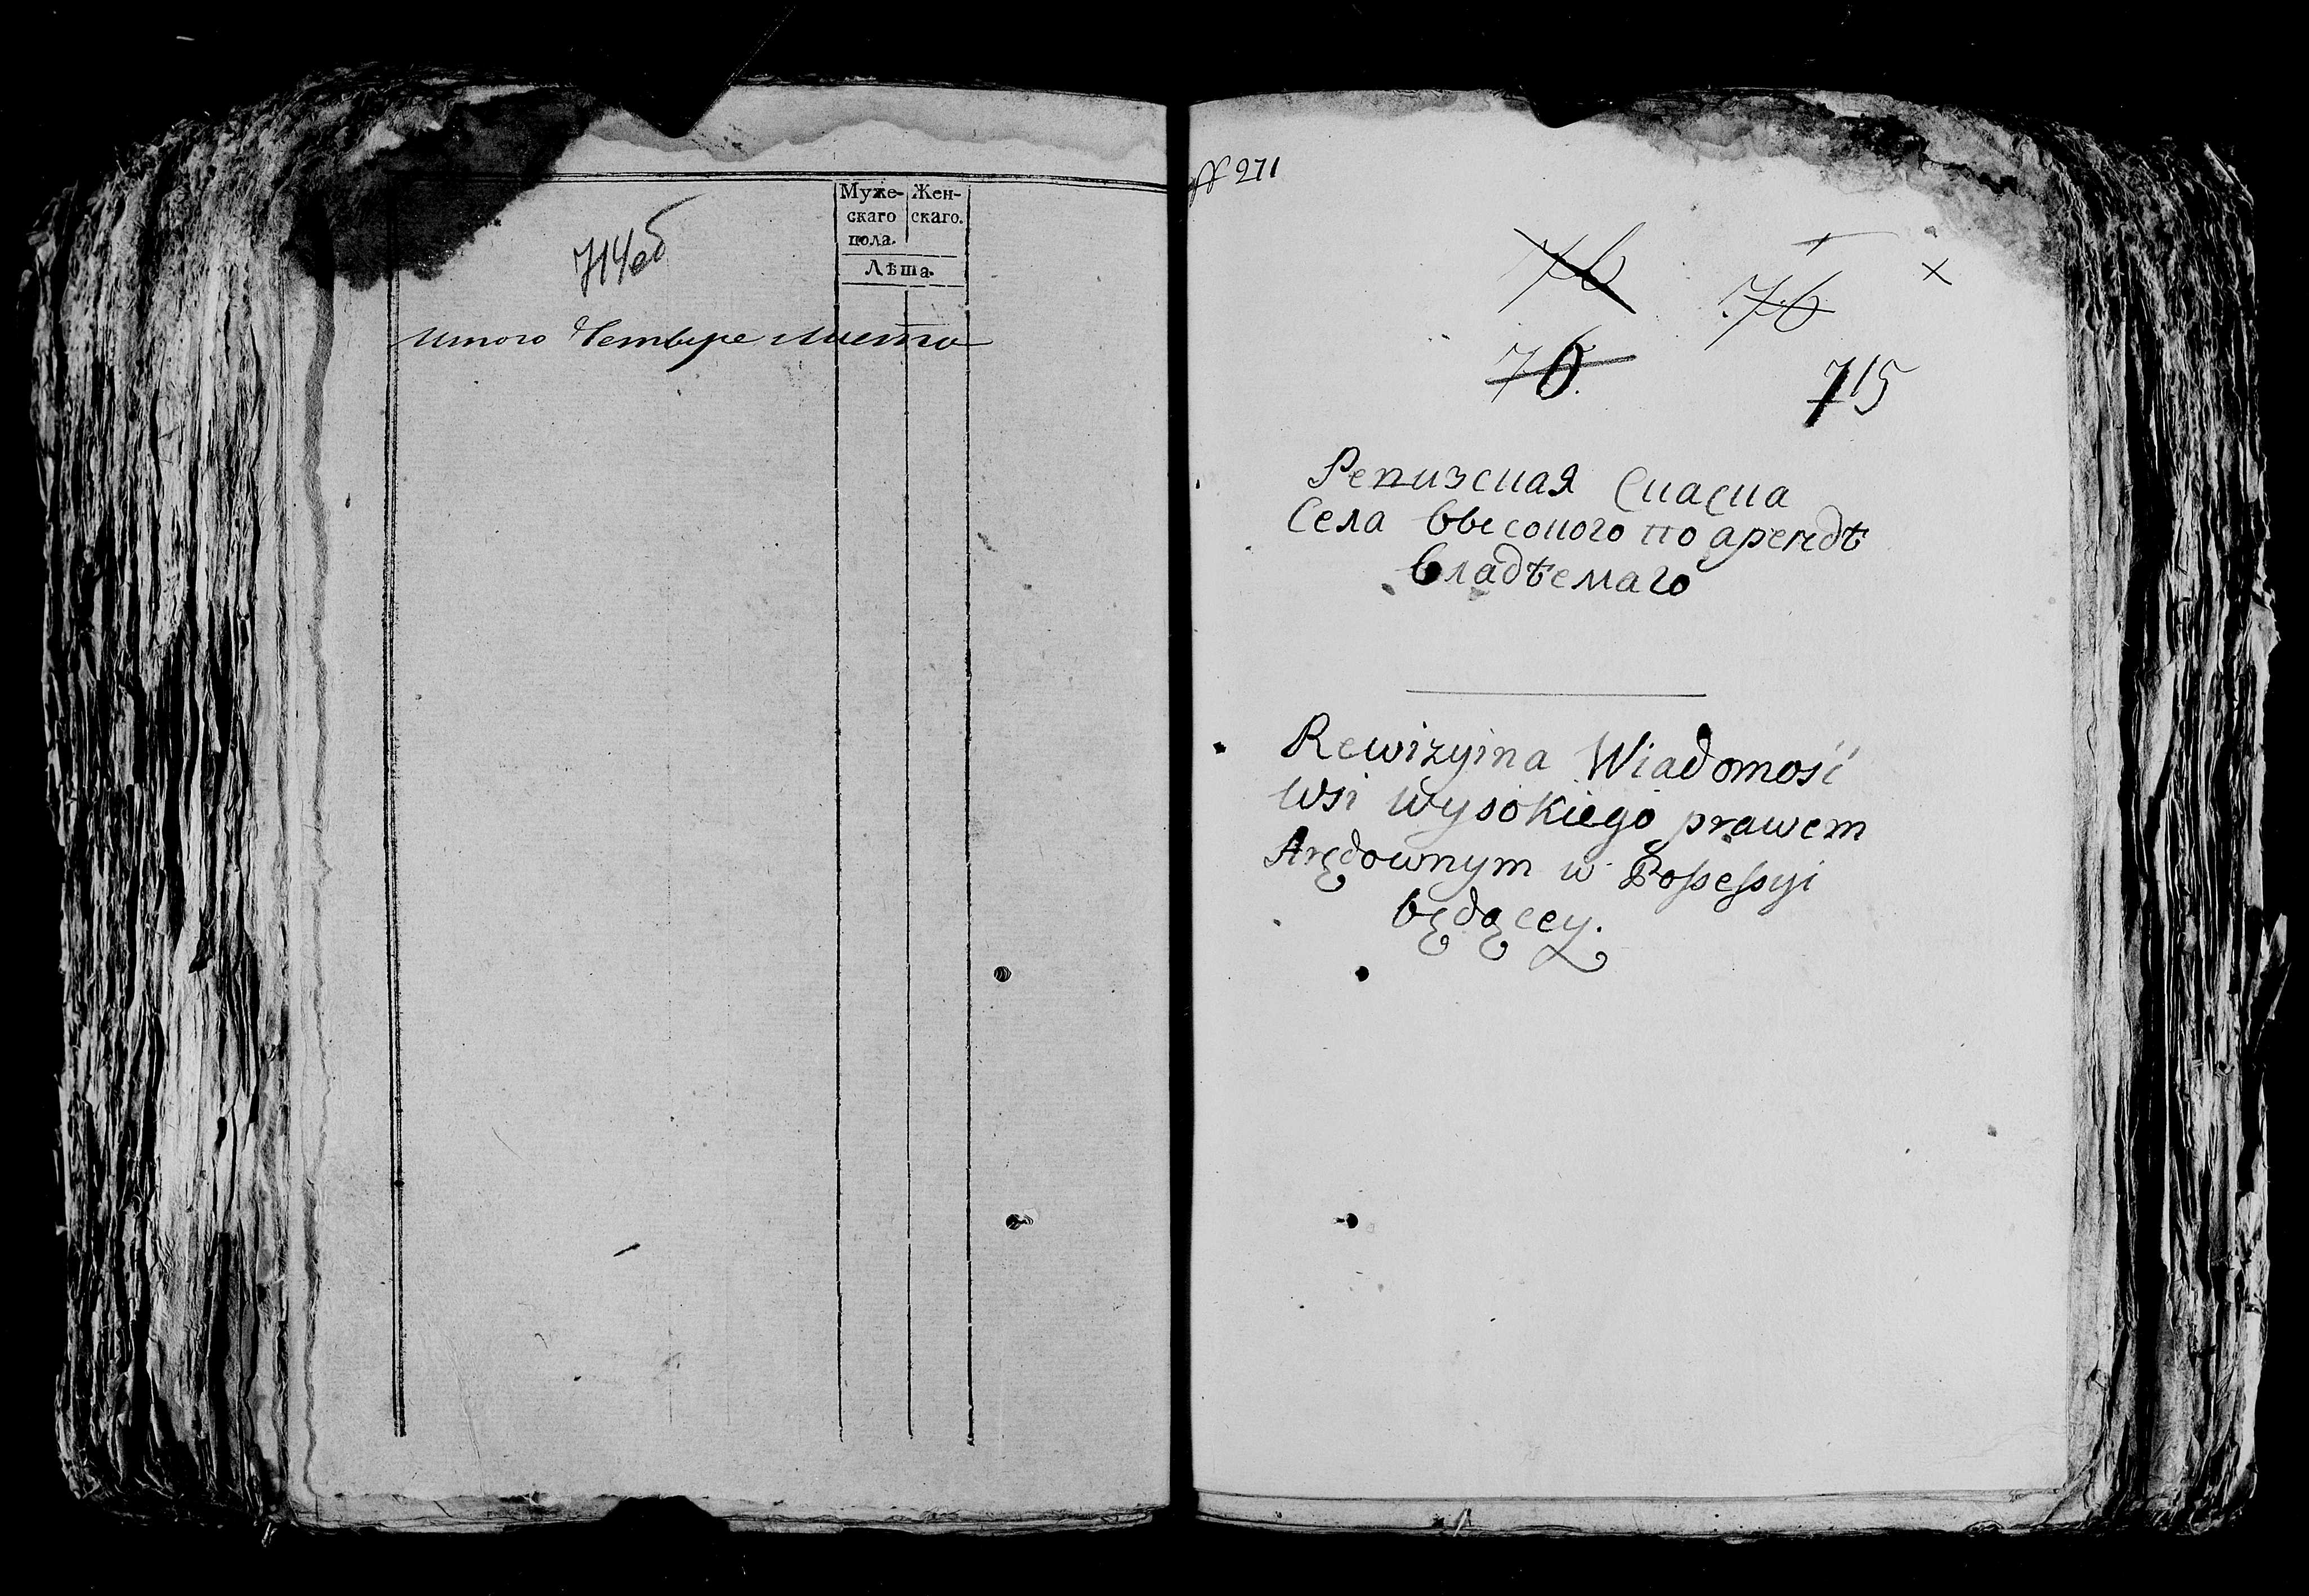 Муже- Жен-
скаго скаго.
пола.
Лѣта.
714об
Итого Четыре листа
№ 271
76 76 ×
76. 715
Ревизская Сказка
Села Высокого по арендѣ
владѣемаго
Rewizyina Wiadomość
Wsi Wysokiego prawem
Arędownym w Possessyi
będącey.